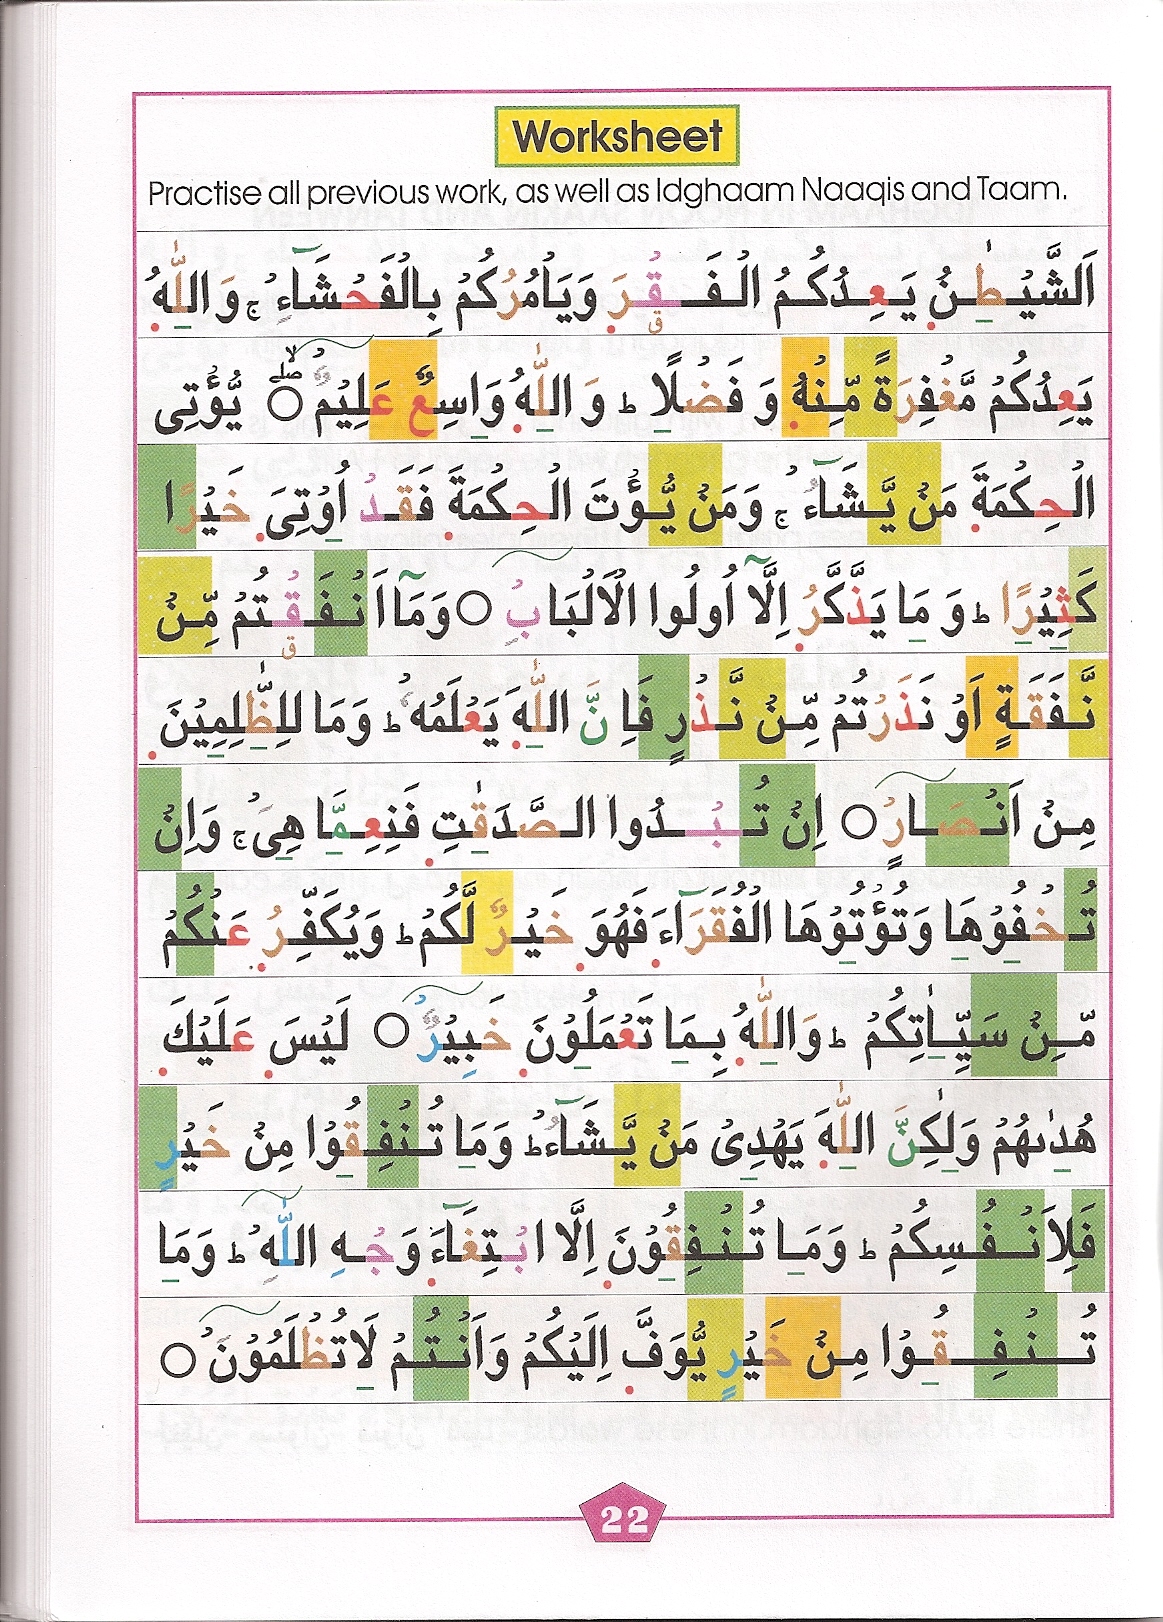 Worksheet
Practise all previous work, as well as Idghaam Naaqis and Taam.
اَلشَّيْطٰنُ يَعِدُكُمُ الْفَقْرَ وَيَاْمُرُكُمْ بِالْفَحْشَآءِ ۚ وَ اللّٰهُ
يَعِدُكُمْ مَّغْفِرَةً مِّنْهُ وَ فَضْلًا ؕ وَ اللّٰهُ وَاسِعٌ عَلِيْمٌ ۙ○ۖ يُّؤْتِى
الْحِكْمَةَ مَنْ يَّشَآءُ ۚ وَمَنْ يُّؤْتَ الْحِكْمَةَ فَقَدْ اُوْتِىَ خَيْرًا
كَثِيْرًا ؕ وَ مَا يَذَّكَّرُ اِلَّآ اُولُوا الْاَلْبَابِ ○ وَمَآ اَنْفَقْتُمْ مِّنْ
نَّفَقَةٍ اَوْ نَذَرْتُمْ مِّنْ نَّذْرٍ فَاِنَّ اللّٰهَ يَعْلَمُهٗ ؕ وَمَا لِلظّٰلِمِيْنَ
مِنْ اَنْصَارٍ ○ اِنْ تُبْدُوا الصَّدَقٰتِ فَنِعِمَّا هِىَ ۚ وَاِنْ
تُخْفُوْهَا وَتُؤْتُوْهَا الْفُقَرَآءَ فَهُوَ خَيْرٌ لَّكُمْ ؕ وَيُكَفِّرُ عَنْكُمْ
مِّنْ سَيِّاٰتِكُمْ ؕ وَاللّٰهُ بِمَا تَعْمَلُوْنَ خَبِيْرٌ ○ لَيْسَ عَلَيْكَ
هُدٰىهُمْ وَلٰكِنَّ اللّٰهَ يَهْدِىْ مَنْ يَّشَآءُ ؕ وَمَا تُنْفِقُوْا مِنْ خَيْرٍ
فَلِاَنْفُسِكُمْ ؕ وَمَا تُنْفِقُوْنَ اِلَّا ابْتِغَآءَ وَجْهِ اللّٰهِ ؕ وَمَا
تُنْفِقُوْا مِنْ خَيْرٍ يُّوَفَّ اِلَيْكُمْ وَاَنْتُمْ لَاتُظْلَمُوْنَ ○
22